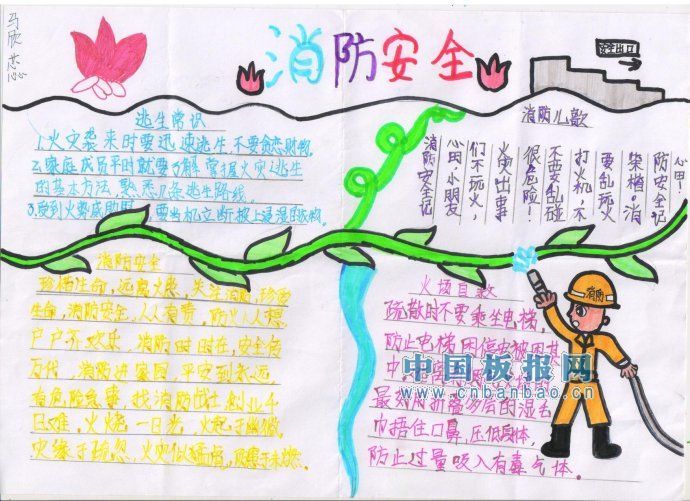 马欣
消防安全
安全出口
逃生常识
1.火灾袭来时要迅速逃生,不要贪恋财物。
2.家庭成员平时就要了解掌握火灾逃生
的基本方法,熟悉几条逃生路线。
3.受到火势威胁时,要当机立断披上浸湿的衣物,
消防儿歌
消防安全记
心田,小朋友
们不玩火,
火突出事
很危险!
不要乱碰
打火机,不
要乱玩火
柴棍。消
防安全记
消防安全
珍惜生命,远离火患,关注消防,珍爱
生命,消防安全,人人有责,防火人人想
户户齐欢乐,消防时时在,安全
万代,消防进家园,平安到永远,
有危险急事,找消防战士创业千
日难,火烧一日光,火起于幽微,
灾缘于疏忽,火灾似猛虎,患于未燃。
火场自救
疏散时不要乘坐电梯,
防止电梯因停电被困其
中,
最好用折叠多层的湿毛
巾捂住口鼻,压低身体,
防止过量吸入有毒气体。
消防
中国板报网
www.cnbanbao.cn